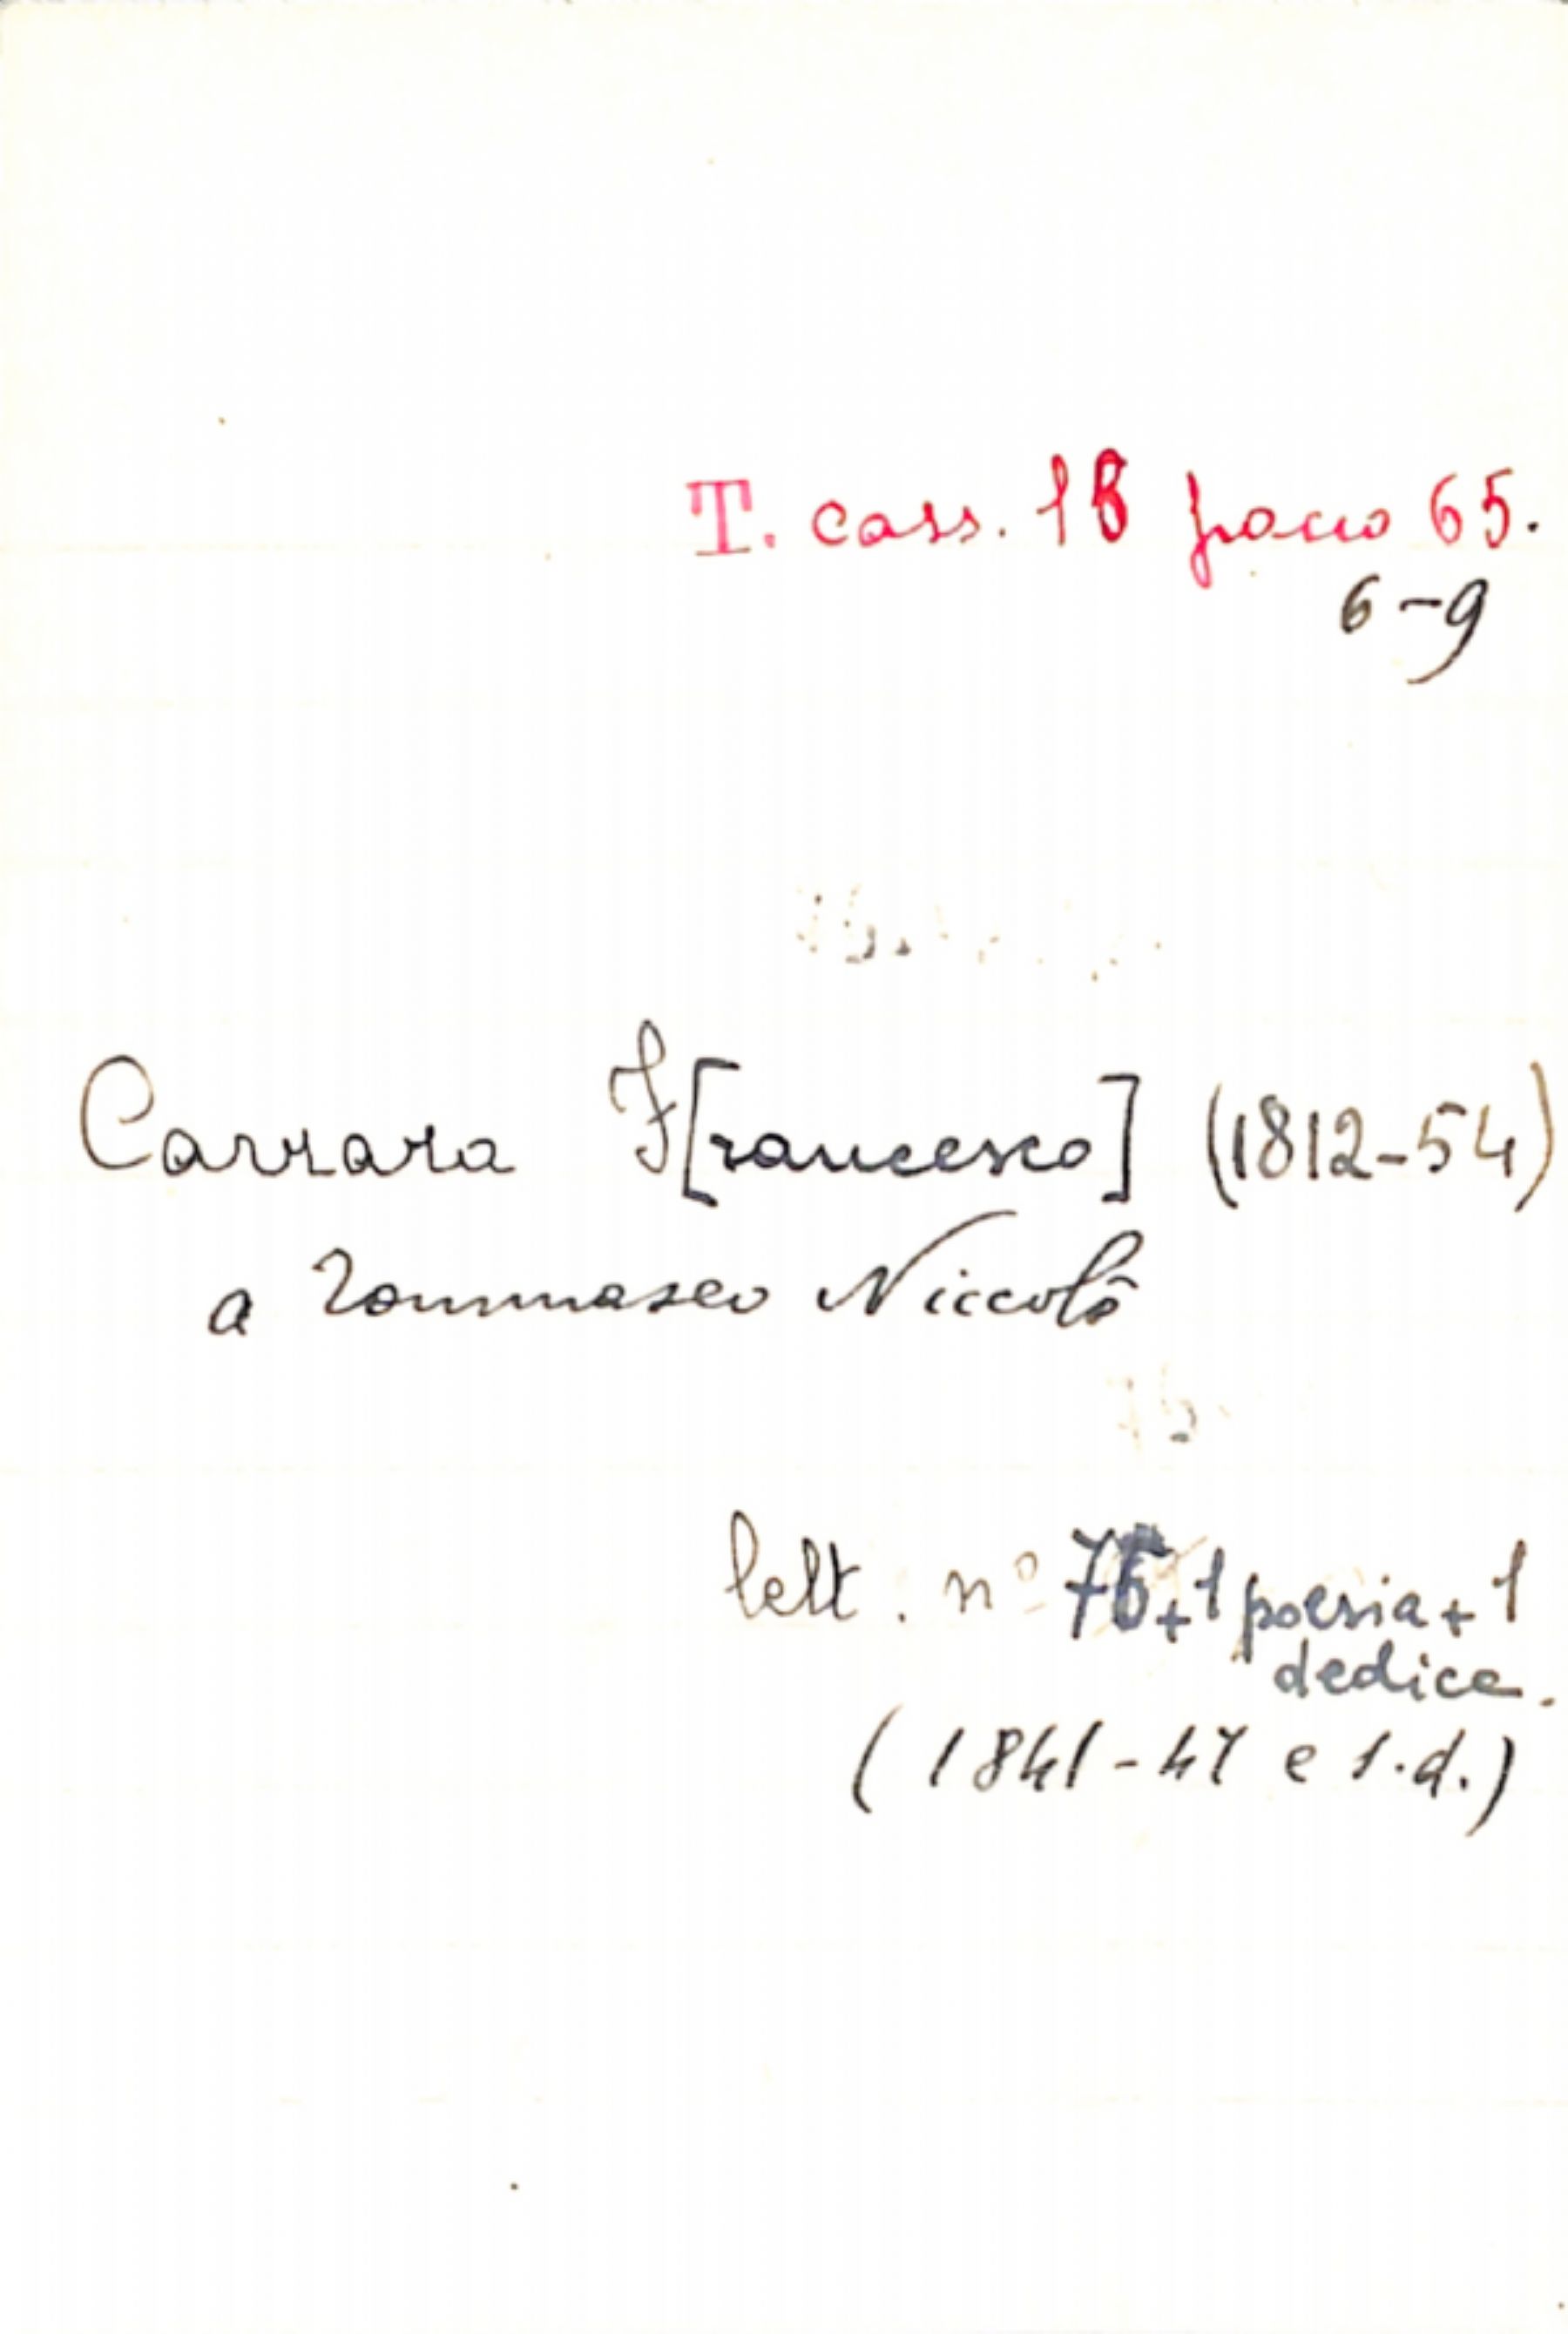 T. cass. 18 pacco 65.
6-9
Carrara F[rancesco] (1812-54)
a Tommaseo Niccolò
lett. nº + 1 poesia + 1
dedica.
(1841-47 e s.d.)